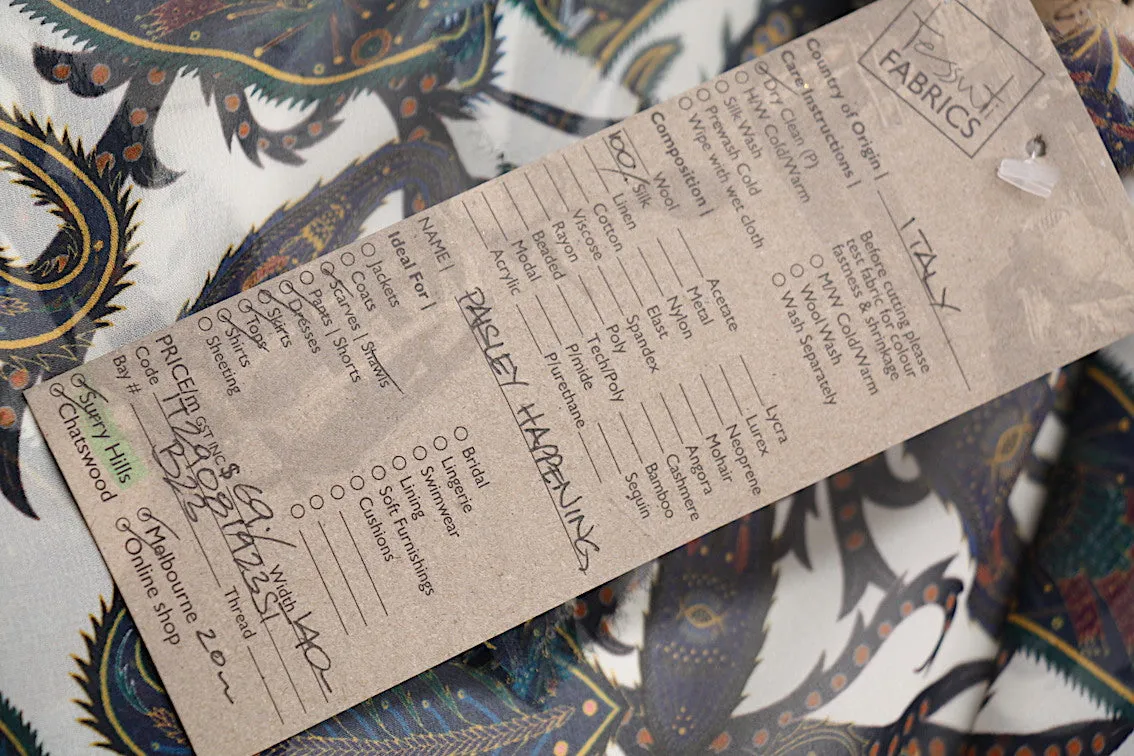 Tessuti
FABRICS
Country of Origin | ITALY
Care Instructions |
Dry Clean (P)
H/W Cold/Warm
Silk Wash
Prewash Cold
Wipe with wet cloth
Before cutting please
test fabric for colour
fastness & shrinkage
M/W Cold/Warm
Wool Wash
Wash Separately
Composition |
Wool
100/ Silk
Linen
Cotton
Viscose
Rayon
Beaded
Modal
Acrylic
Acetate
Metal
Nylon
Elast
Spandex
Poly
Tech/Poly
P/mide
P/urethane
Lycra
Lurex
Neoprene
Mohair
Angora
Cashmere
Bamboo
Sequin
NAME | PAISLEY HAPPENING
Ideal For |
Jackets
Coats
Scarves | Shawls
Pants | Shorts
Dresses
Skirts
Tops
Shirts
Sheeting
Bridal
Lingerie
Swimwear
Lining
Soft Furnishings
Cushions
PRICE/m GST INC $ 69./ Width 140
Code
Bay # Thread
Surry Hills
Chatswood
Melbourne 20m
Online shop